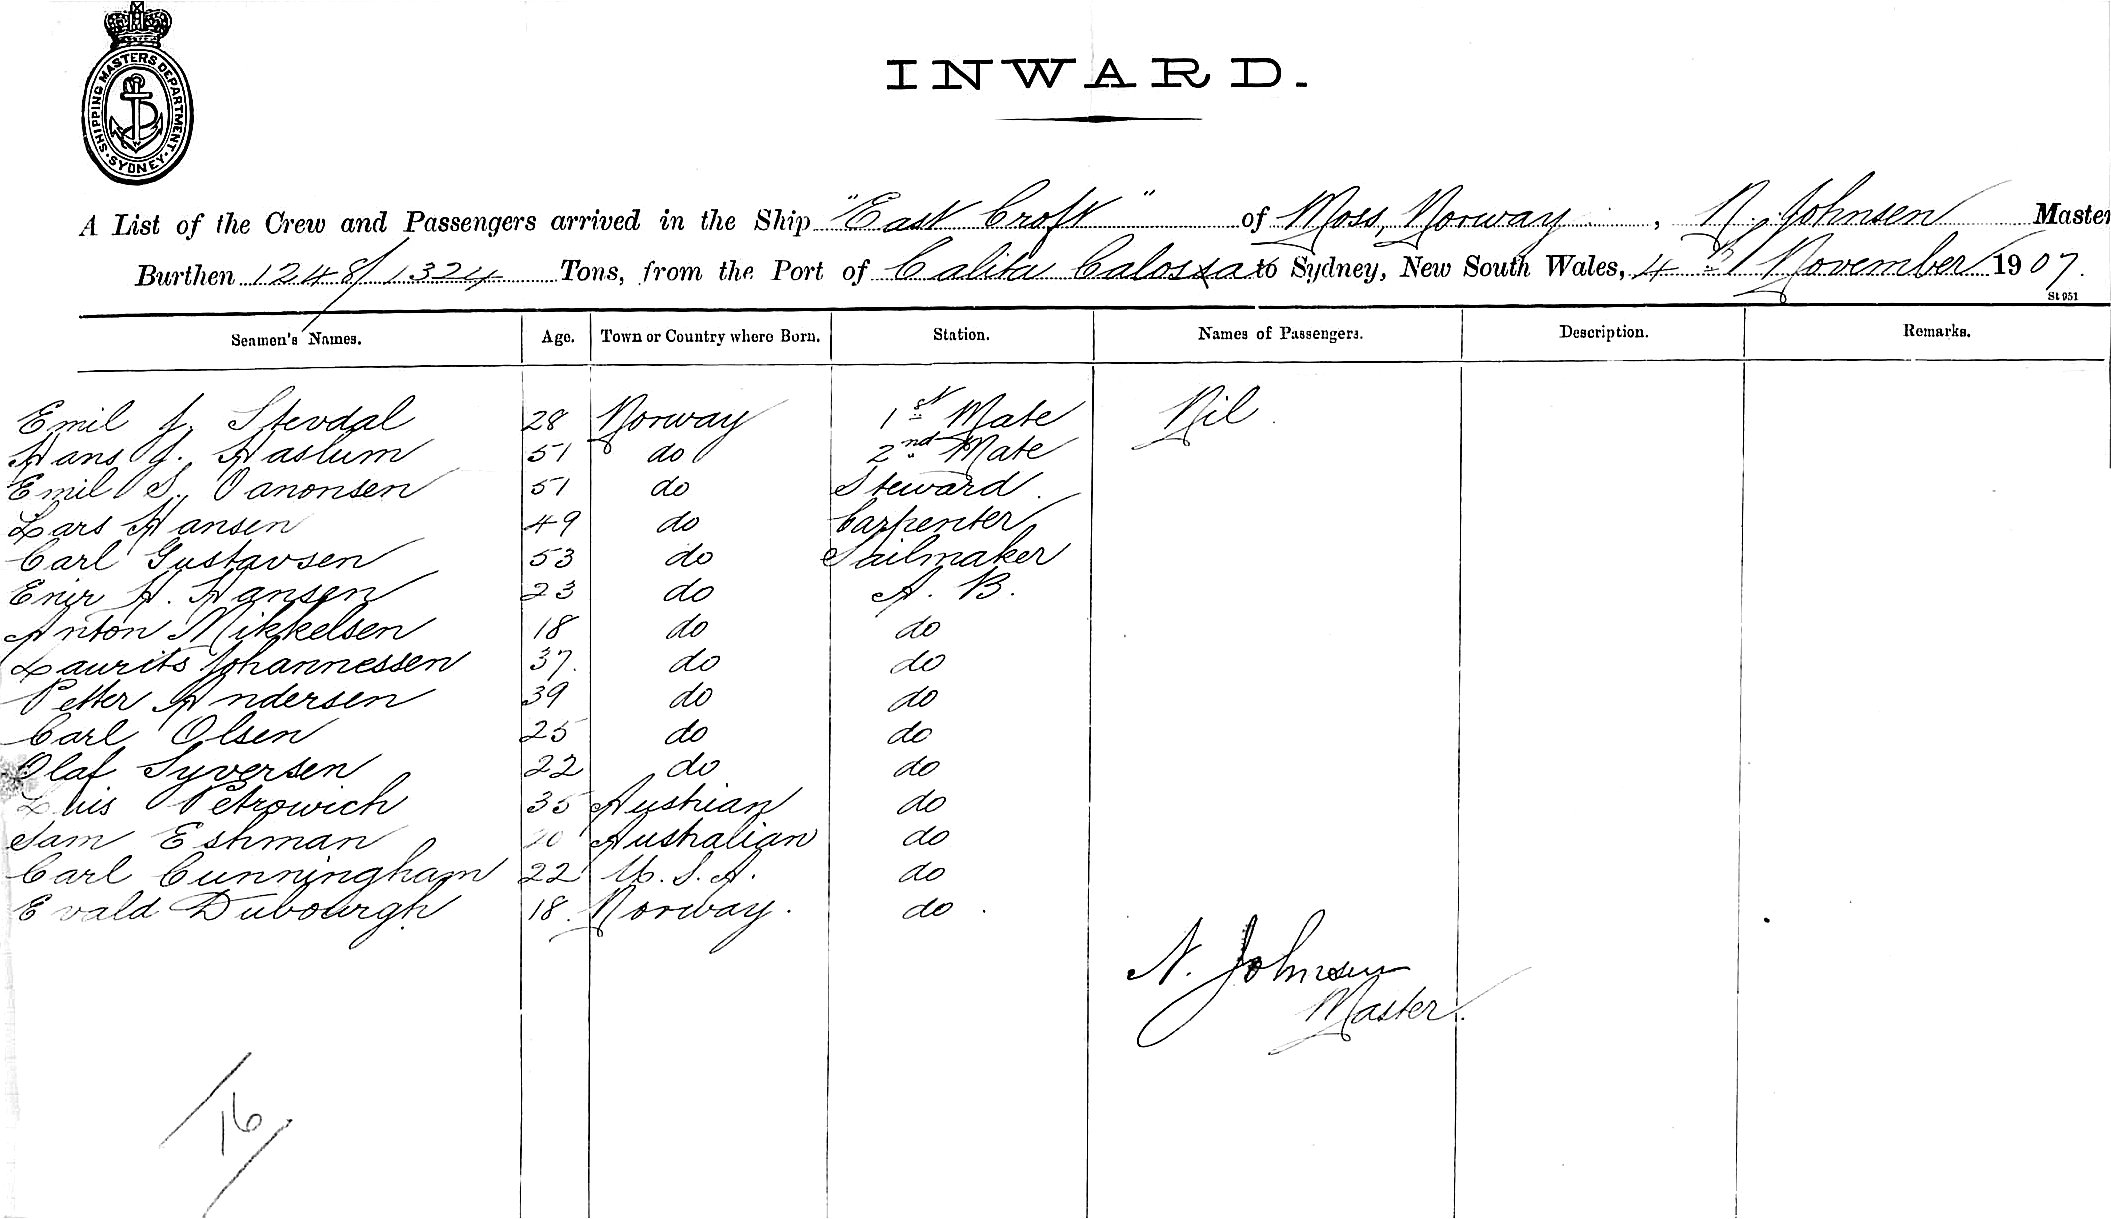 SHIPPING MASTERS DEPARTMENT · SYDNEY ·
INWARD.
A List of the Crew and Passengers arrived in the Ship "East Croft" of Moss, Norway, N. Johnsen Master
Burthen 1248/1324 Tons, from the Port of Calita Calossa to Sydney, New South Wales, 4th November 1907.
St 951
Seamen's Names. Age. Town or Country where Born. Station. Names of Passengers. Description. Remarks.
Emil J. Stevdal 28 Norway 1st Mate Nil.
Hans J. Haslum 51 do 2nd Mate
Emil S. 51 do Steward.
Lars Hansen 49 do Carpenter
Carl Gustavsen 53 do Sailmaker
H. Hansen 23 do A. B.
Anton Mikkelsen 18 do do
Laurits Johannessen 37. do do
Petter Andersen 39 do do
Carl Olsen 25 do do
Olaf Syversen 22 do do
Luis Petrowich 35 Austrian do
Sam Eshman Australian do
Carl Cunningham 22 U. S. A. do
Evald Dubourgh 18. Norway. do.
N. Johnsen
Master.
16